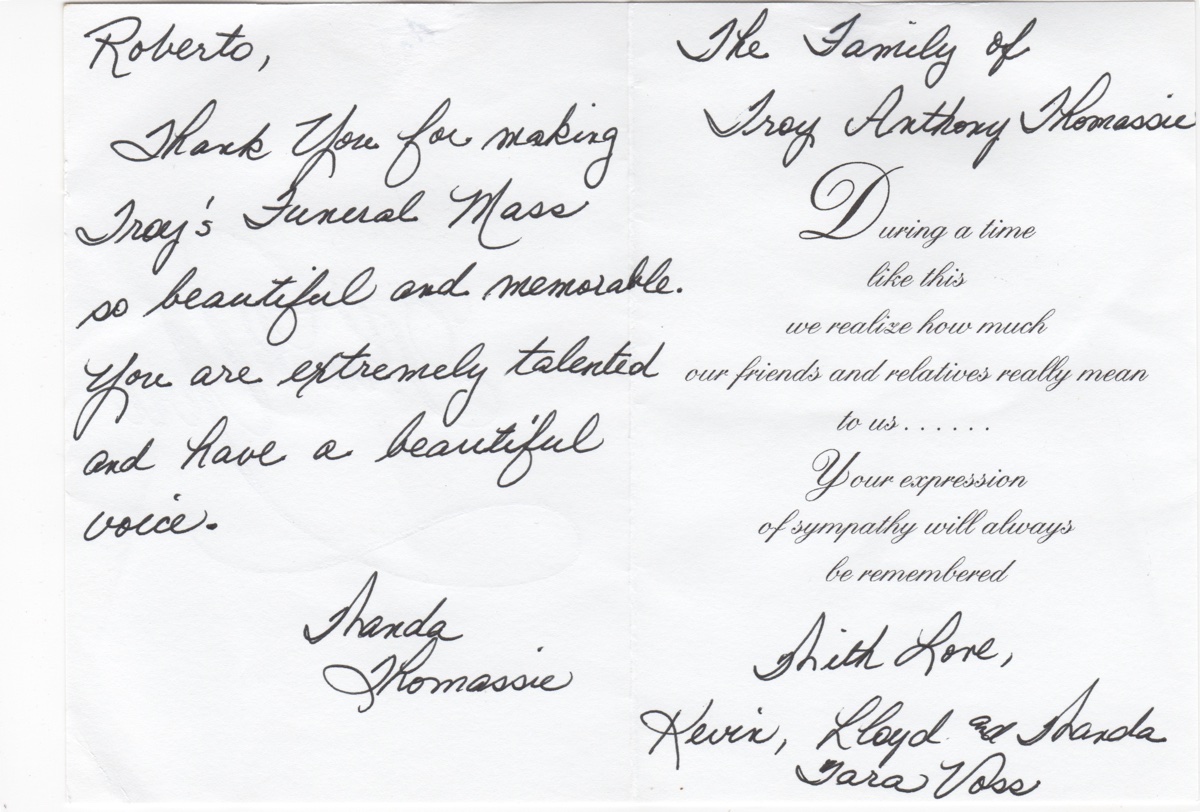 Roberto,
Thank You for making
Troy's Funeral Mass
so beautiful and memorable.
You are extremely talented
and have a beautiful
voice.
Wanda
Thomassie
The Family of
Troy Anthony Thomassie
During a time
like this
we realize how much
our friends and relatives really mean
to us......
Your expression
of sympathy will always
be remembered
With Love,
Kevin, Lloyd and Wanda
Tara Voss